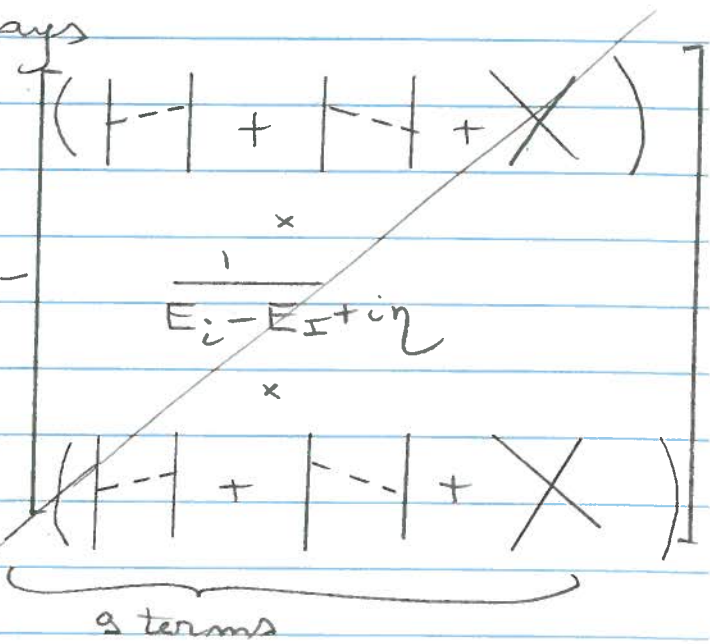 ays
( + + )
×
1
E_i - E_I + iη
×
( + + )
9 terms